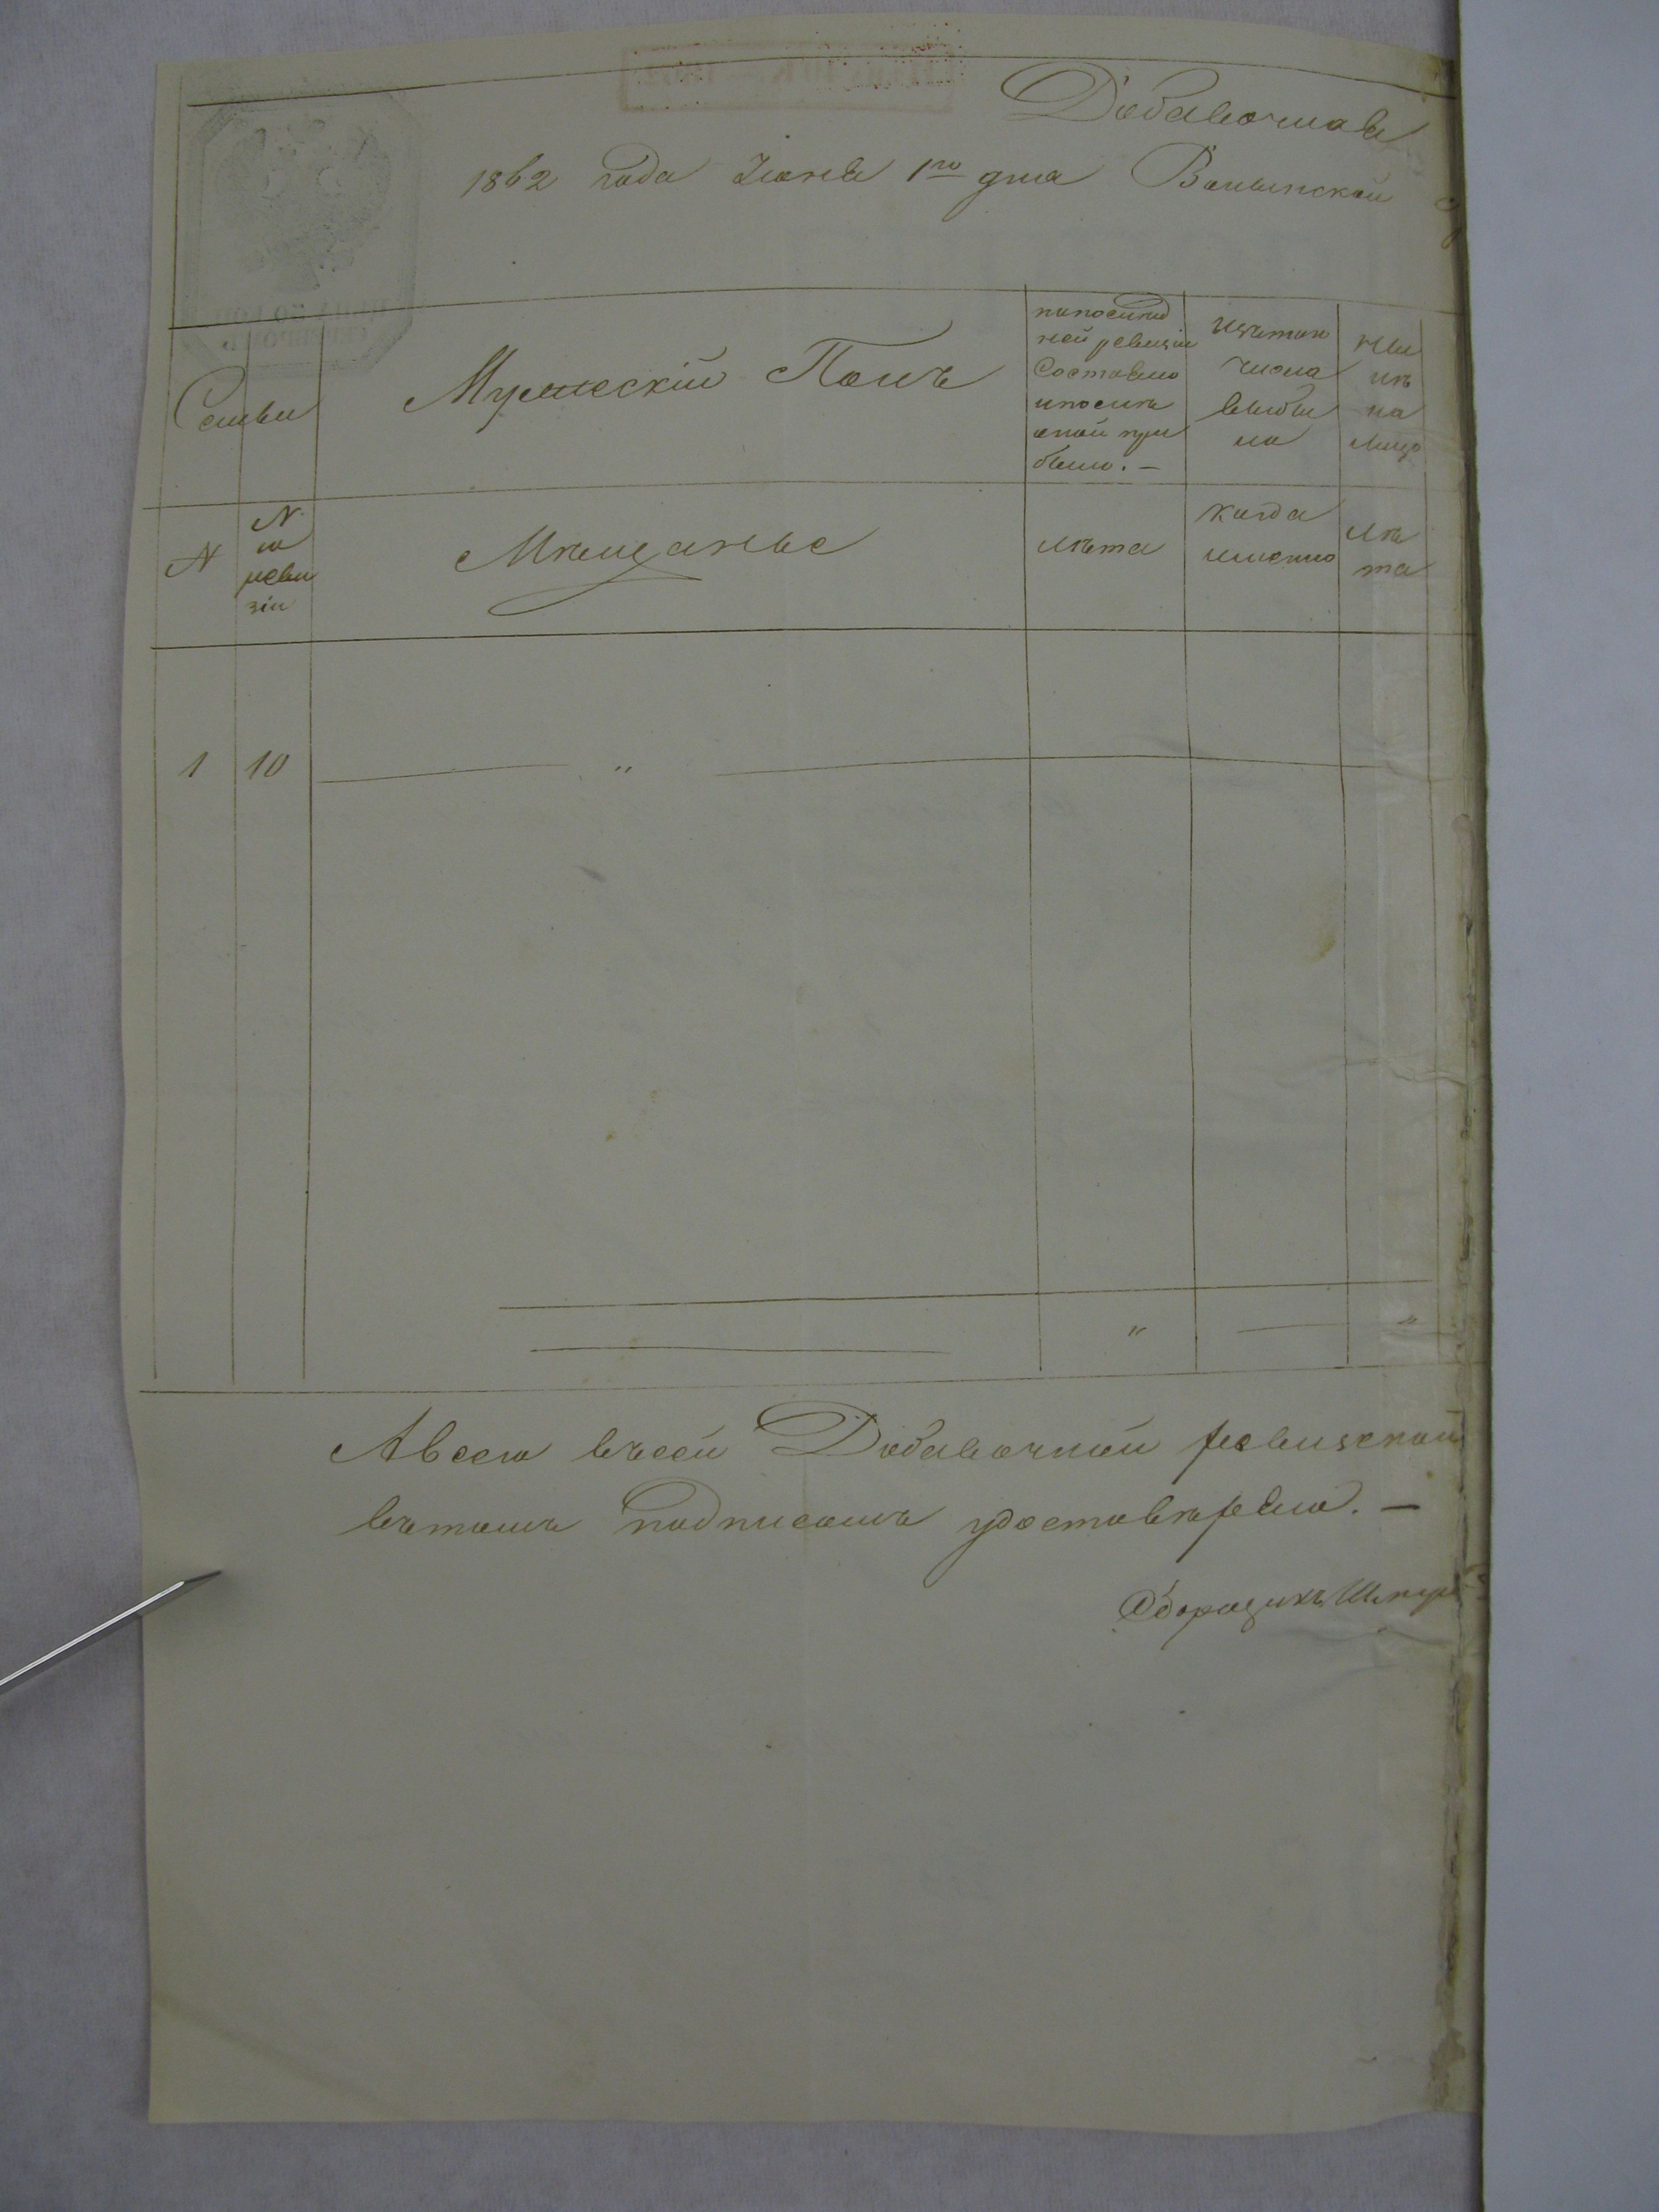 Добавочная
1862 года Іюня 1го дня Волынской
Семьи
Мужескій Полъ
по послѣд
ней ревизіи
Состояло
и послѣ
оной при
было. —
Изъ того
числа
выбы
ло
Ны
нѣ
на
лицо
N
N.
по
реви
зіи
Мѣщанье
Лѣта
Когда
именно
Лѣ
та
1 10 — " —
" — "
А всего въ сей Добавочной ревизской
въ томъ подписомъ удостовѣряемъ. —
Сборщикъ